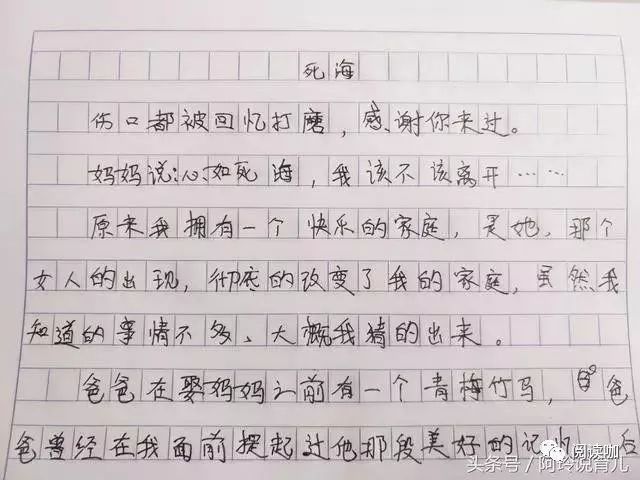 死海
伤口都被回忆打磨，感谢你来过。
妈妈说:心如死海，我该不该离开……
原来我拥有一个快乐的家庭，是她，那个
女人的出现，彻底的改变了我的家庭，虽然我
知道的事情不多、大概我猜的出来。
爸爸在娶妈妈之前有一个青梅竹马，爸
爸曾经在我面前提起过他那段美好的记忆，后
阅读咖
头条号／阿玲说育儿